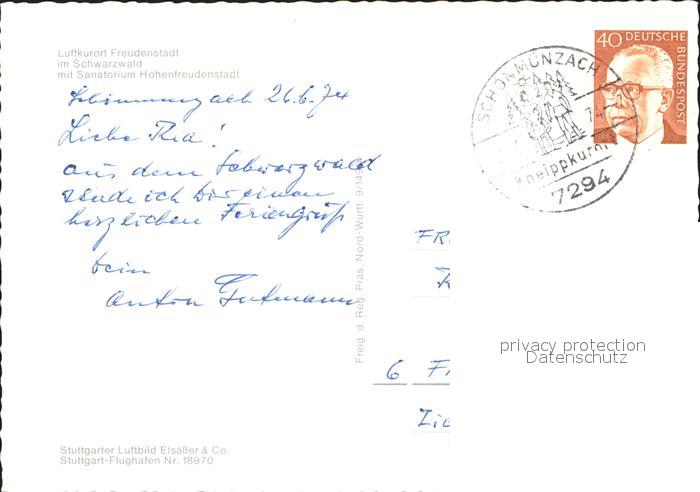 Luftkurort Freudenstadt
im Schwarzwald
mit Sanatorium Hohenfreudenstadt
Schönmünzach 26.6.74
Liebe Thea!
aus dem Schwarzwald
sende ich Dir einen
herzlichen Feriengruß
Dein
Anton Gutmann
Stuttgarter Luftbild Elsäßer & Co.
Stuttgart-Flughafen Nr. 18970
Freig. d. Reg. Präs. Nord-Württ. 9/149
SCHÖNMÜNZACH
74
Kneippkurort
7294
40 DEUTSCHE
BUNDESPOST
FR
6 F
Zie
privacy protection
Datenschutz